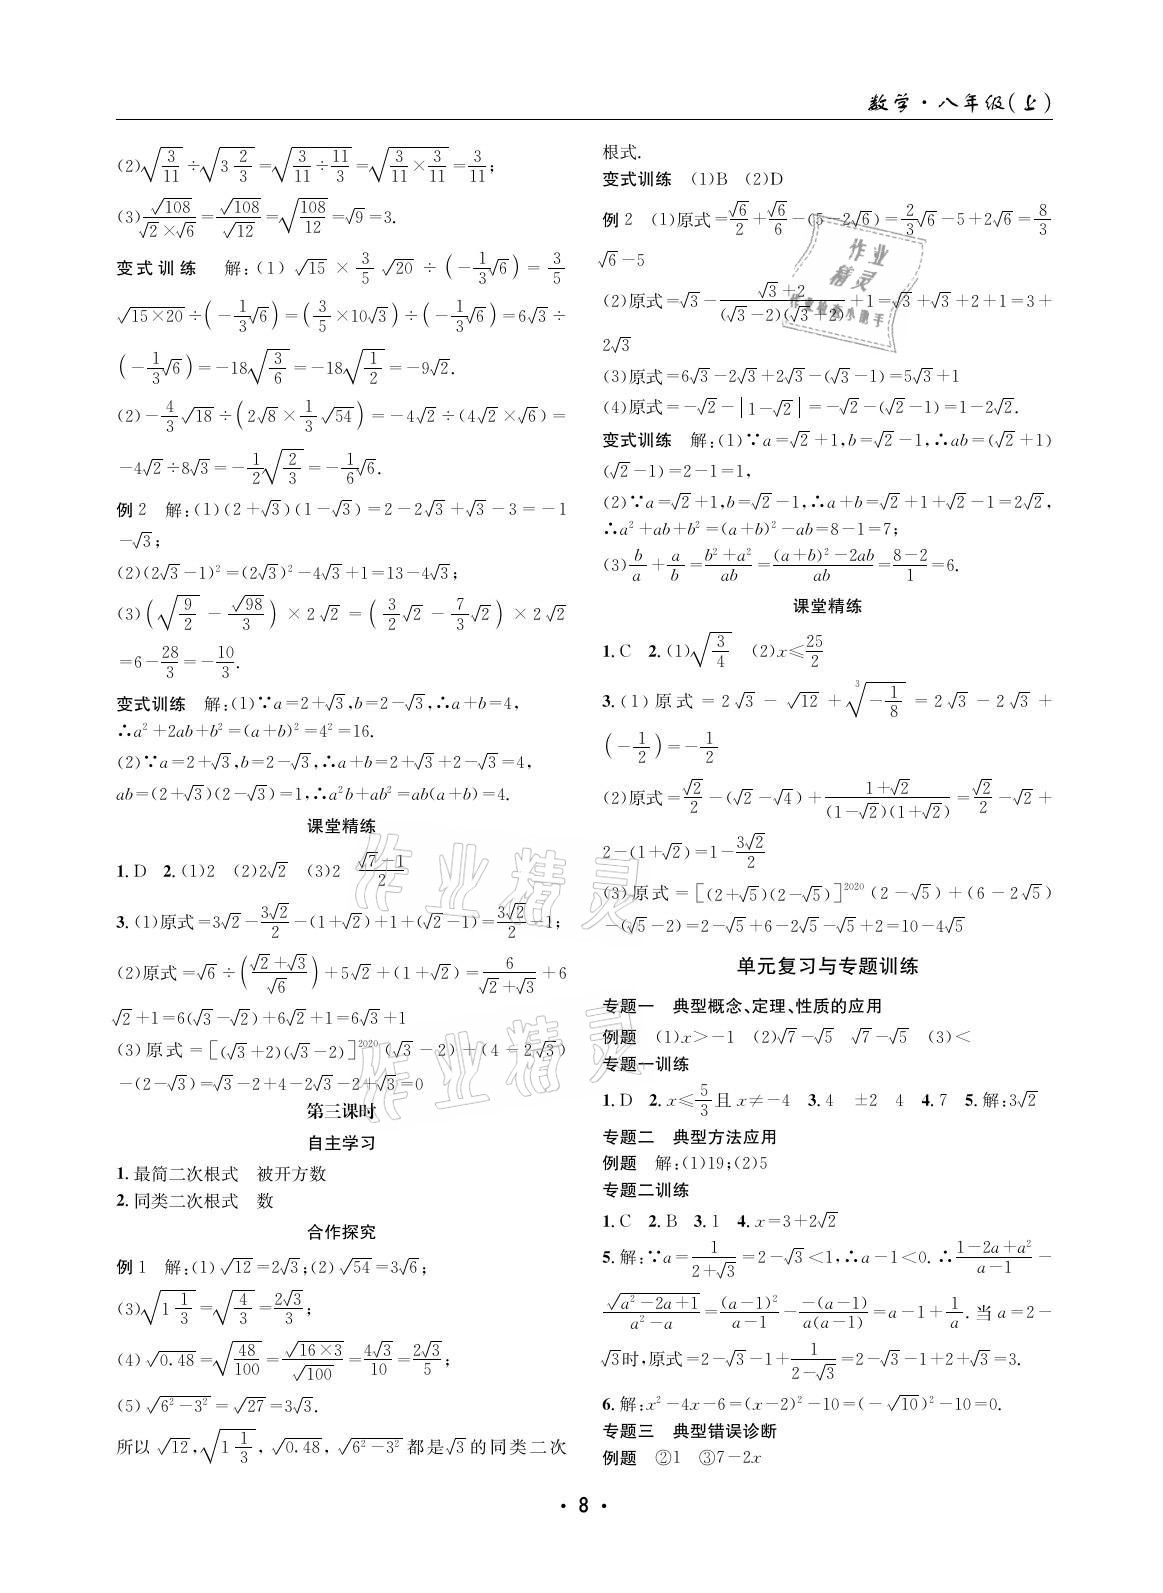 数学·八年级(上)
(2)√(3/11)÷√(3 2/3)=√(3/11÷11/3)=√(3/11×3/11)=3/11;
(3)√108/(√2×√6)=√108/√12=√(108/12)=√9=3.
变式训练 解:(1)√15×3/5√20÷(-1/3√6)=3/5
√(15×20)÷(-1/3√6)=(3/5×10√3)÷(-1/3√6)=6√3÷
(-1/3√6)=-18√(3/6)=-18√(1/2)=-9√2.
(2)-4/3√18÷(2√8×1/3√54)=-4√2÷(4√2×√6)=
-4√2÷8√3=-1/2√(2/3)=-1/6√6.
例2 解:(1)(2+√3)(1-√3)=2-2√3+√3-3=-1
-√3;
(2)(2√3-1)²=(2√3)²-4√3+1=13-4√3;
(3)(√(9/2)-√98/3)×2√2=(3/2√2-7/3√2)×2√2
=6-28/3=-10/3.
变式训练 解:(1)∵a=2+√3,b=2-√3,∴a+b=4,
∴a²+2ab+b²=(a+b)²=4²=16.
(2)∵a=2+√3,b=2-√3,∴a+b=2+√3+2-√3=4,
ab=(2+√3)(2-√3)=1,∴a²b+ab²=ab(a+b)=4.
课堂精练
1.D 2.(1)2 (2)2√2 (3)2 (√7-1)/2
3.(1)原式=3√2-3√2/2-(1+√2)+1+(√2-1)=3√2/2-1;
(2)原式=√6÷((√2+√3)/√6)+5√2+(1+√2)=6/(√2+√3)+6
√2+1=6(√3-√2)+6√2+1=6√3+1
(3)原式=[(√3+2)(√3-2)]²⁰²⁰(√3-2)+(4-2√3)
-(2-√3)=√3-2+4-2√3-2+√3=0
第三课时
自主学习
1.最简二次根式 被开方数
2.同类二次根式 数
合作探究
例1 解:(1)√12=2√3;(2)√54=3√6;
(3)√(1 1/3)=√(4/3)=2√3/3;
(4)√0.48=√(48/100)=√(16×3)/√100=4√3/10=2√3/5;
(5)√(6²-3²)=√27=3√3.
所以√12,√(1 1/3),√0.48,√(6²-3²)都是√3的同类二次
根式.
变式训练 (1)B (2)D
例2 (1)原式=√6/2+√6/6-(5-2√6)=2/3√6-5+2√6=8/3
√6-5
(2)原式=√3-(√3+2)/((√3-2)(√3+2))+1=√3+√3+2+1=3+
2√3
(3)原式=6√3-2√3+2√3-(√3-1)=5√3+1
(4)原式=-√2-|1-√2|=-√2-(√2-1)=1-2√2.
变式训练 解:(1)∵a=√2+1,b=√2-1,∴ab=(√2+1)
(√2-1)=2-1=1,
(2)∵a=√2+1,b=√2-1,∴a+b=√2+1+√2-1=2√2,
∴a²+ab+b²=(a+b)²-ab=8-1=7;
(3)b/a+a/b=(b²+a²)/ab=((a+b)²-2ab)/ab=(8-2)/1=6.
课堂精练
1.C 2.(1)√(3/4) (2)x≤25/2
3.(1)原式=2√3-√12+³√(-1/8)=2√3-2√3+
(-1/2)=-1/2
(2)原式=√2/2-(√2-√4)+(1+√2)/((1-√2)(1+√2))=√2/2-√2+
2-(1+√2)=1-3√2/2
(3)原式=[(2+√5)(2-√5)]²⁰²⁰(2-√5)+(6-2√5)
-(√5-2)=2-√5+6-2√5-√5+2=10-4√5
单元复习与专题训练
专题一 典型概念、定理、性质的应用
例题 (1)x>-1 (2)√7-√5 √7-√5 (3)<
专题一训练
1.D 2.x≤5/3且x≠-4 3.4 ±2 4 4.7 5.解:3√2
专题二 典型方法应用
例题 解:(1)19;(2)5
专题二训练
1.C 2.B 3.1 4.x=3+2√2
5.解:∵a=1/(2+√3)=2-√3<1,∴a-1<0.∴(1-2a+a²)/(a-1)-
√(a²-2a+1)/(a²-a)=(a-1)²/(a-1)--(a-1)/a(a-1)=a-1+1/a.当a=2-
√3时,原式=2-√3-1+1/(2-√3)=2-√3-1+2+√3=3.
6.解:x²-4x-6=(x-2)²-10=(-√10)²-10=0.
专题三 典型错误诊断
例题 ②1 ③7-2x
·8·
作业
精灵
作业精灵
作业精灵